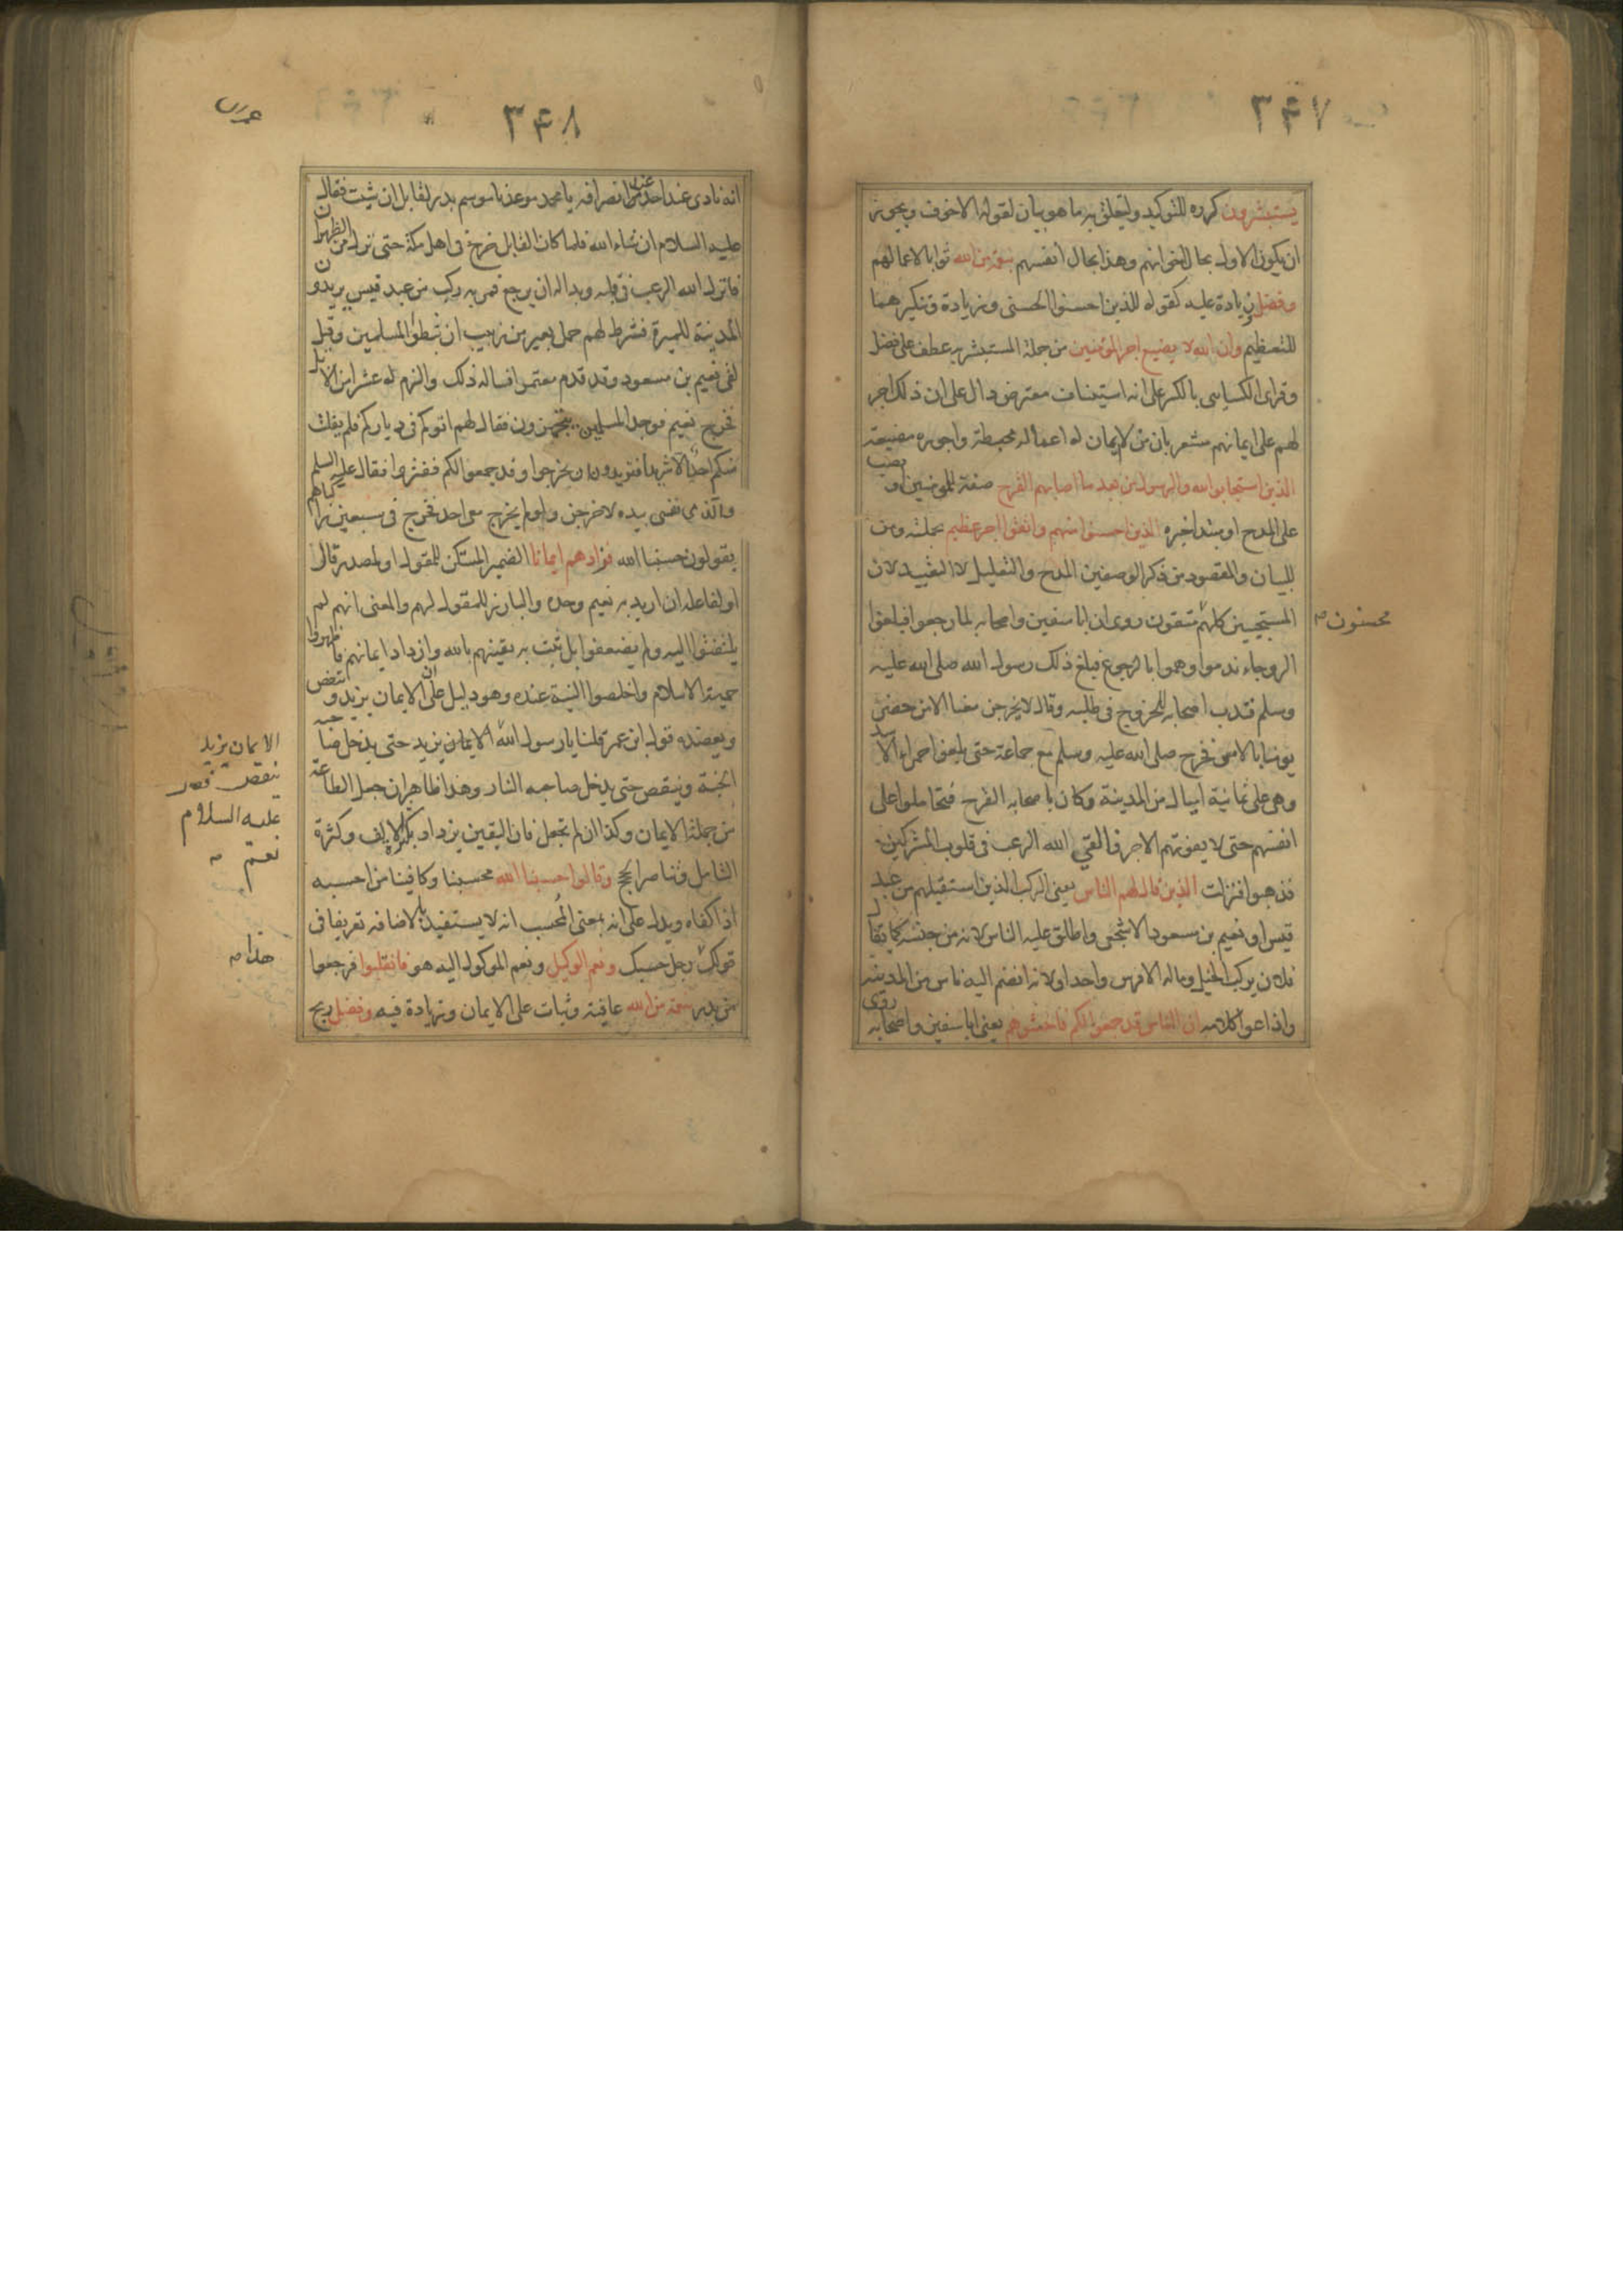 ٣٤٧
يستبشرون كرره للتوكيد وليتعلق به ما هو بيان لقوله الاخوف ويجوز
ان يكون الاول بحال اخوانهم وهذا بحال انفسهم بنعمة من الله ثوابا لاعمالهم
وفضل زيادة عليه كقوله للذين احسنوا الحسنى وزيادة وتنكيرهما
للتعظيم وان الله لا يضيع اجر المؤمنين من جملة المستبشر به عطف على فضل
وقرأ الكسايى بالكسر على انه استيناف معترض دال على ان ذلك اجر
لهم على ايمانهم مشعر بان من لا ايمان له اعماله محبطة واجوره مضيعة
الذين استجابوا لله والرسول من بعد ما اصابهم القرح صفة للمؤمنين او نصب
على المدح او مبتدا خبره الذين احسنوا منهم واتقوا اجر عظيم بجملته ومن
للبيان والمقصود من ذكر الوصفين المدح والتعليل لا التقييد لان
المستجيبين كلهم متقون روى ان ابا سفين واصحابه لما رجعوا فبلغوا
محسنون صح
الروحاء ندموا وهموا بالرجوع فبلغ ذلك رسول الله صلى الله عليه
وسلم فندب اصحابه للخروج فى طلبه وقال لا يخرجن معنا الا من حضر
يومنا بالامس فخرج صلى الله عليه وسلم مع جماعة حتى بلغوا حمراء الاسد
وهى على ثمانية اميال من المدينة وكان باصحابه القرح فتحاملوا على
انفسهم حتى لا يفوتهم الاجر والقى الله الرعب فى قلوب المشركين
فذهبوا فنزلت الذين قال لهم الناس يعنى الركب الذين استقبلهم من عبد
قيس او نعيم بن مسعود الاشجعى واطلق عليه الناس لانه من جنسه كما يقال
فلان يركب الخيل وماله الا فرس واحد او لانه انضم اليه ناس من المدينة
واذاعوا كلامه ان الناس قد جمعوا لكم فاخشوهم يعنى ابا سفين واصحابه روى
٣٤٨
عمران
انه نادى عند انصرافه من احد يا محمد موعدنا موسم بدر لقابل ان شيت فقال
عليه السلام ان شاء الله فلما كان القابل خرج فى اهل مكة حتى نزل مر الظهران
فانزل الله الرعب فى قلبه وبدا له ان يرجع فمر به ركب من عبد قيس يريدون
المدينة للميرة فشرط لهم حمل بعير من زبيب ان ثبطوا المسلمين وقيل
لقى نعيم بن مسعود وقد قدم معتمرا فساله ذلك والتزم له عشرا من الابل
فخرج نعيم فوجد المسلمين يتجهزون فقال لهم اتوكم فى دياركم فلم يفلت
منكم احد الا شريد افتريدون ان يخرجوا وقد جمعوا لكم ففتروا فقال عليه السلم
والذى نفسى بيده لاخرجن ولو لم يخرج معى احد فخرج فى سبعين راكبا هم
يقولون حسبنا الله فزادهم ايمانا الضمير المستكن للمقول او لمصدر قال
او لفاعله ان اريد به نعيم وحده والبارز للمقول لهم والمعنى انهم لم
يلتفتوا اليه ولم يضعفوا بل ثبت به يقينهم بالله وازداد ايمانهم فاظهروا
حمية الاسلام واخلصوا النية عنده وهو دليل على ان الايمان يزيد وينقص
ويعضده قول ابن عمر قلنا يا رسول الله الايمان يزيد حتى يدخل صاحبه
الايمان يزيد
وينقص قال
عليه السلام
نعم صح
الجنة وينقص حتى يدخل صاحبه النار وهذا ظاهر ان جعل الطاعة
من جملة الايمان وكذا ان لم تجعل فان اليقين يزداد بكثرة الالف وكثرة
التامل وتناصر الحجج وقالوا حسبنا الله محسبنا وكافينا من احسبه
اذا كفاه ويدل على انه بمعنى المحسب انه لا يستفيد بالاضافة تعريفا فى
قولك رجل حسبك ونعم الوكيل ونعم الموكول اليه هو فانقلبوا فرجعوا
هذا صح
من بدر بنعمة من الله عافية وثبات على الايمان وزيادة فيه وفضل ربح